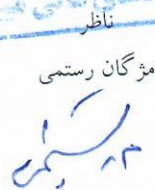 ناظر
مژگان رستمی